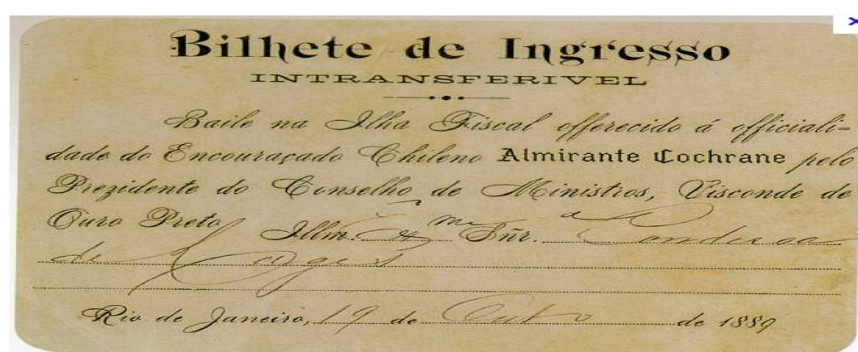 Bilhete de Ingresso
INTRANSFERIVEL
Baile na Ilha Fiscal offerecido á officiali-
dade do Encouraçado Chileno Almirante Cochrane pelo
Prezidente do Conselho de Ministros, Visconde de
Ouro Preto Illm. Snr.
de
Rio de Janeiro, 19 de Outo de 1889